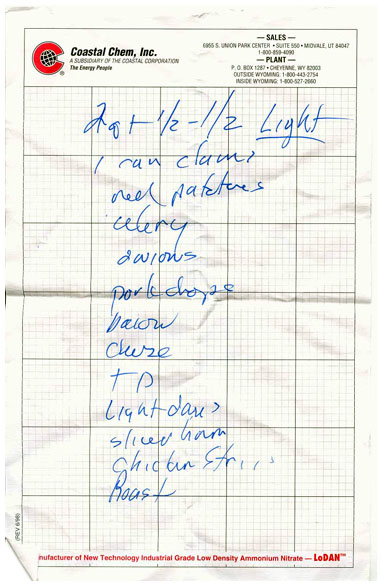 — SALES —
Coastal Chem, Inc.
6955 S. UNION PARK CENTER • SUITE 550 • MIDVALE, UT 84047
A SUBSIDIARY OF THE COASTAL CORPORATION
1-800-859-4090
The Energy People
— PLANT —
P. O. BOX 1287 • CHEYENNE, WY 82003
OUTSIDE WYOMING: 1-800-443-2754
INSIDE WYOMING: 1-800-527-2660
2 qt 1/2 - 1/2 Light
1 can clams
red patatoes
celery
onions
pork chops
bacon
cheese
TP
Light
sliced ham
chicken strips
Roast
(REV 6/98)
nufacturer of New Technology Industrial Grade Low Density Ammonium Nitrate — LoDAN™